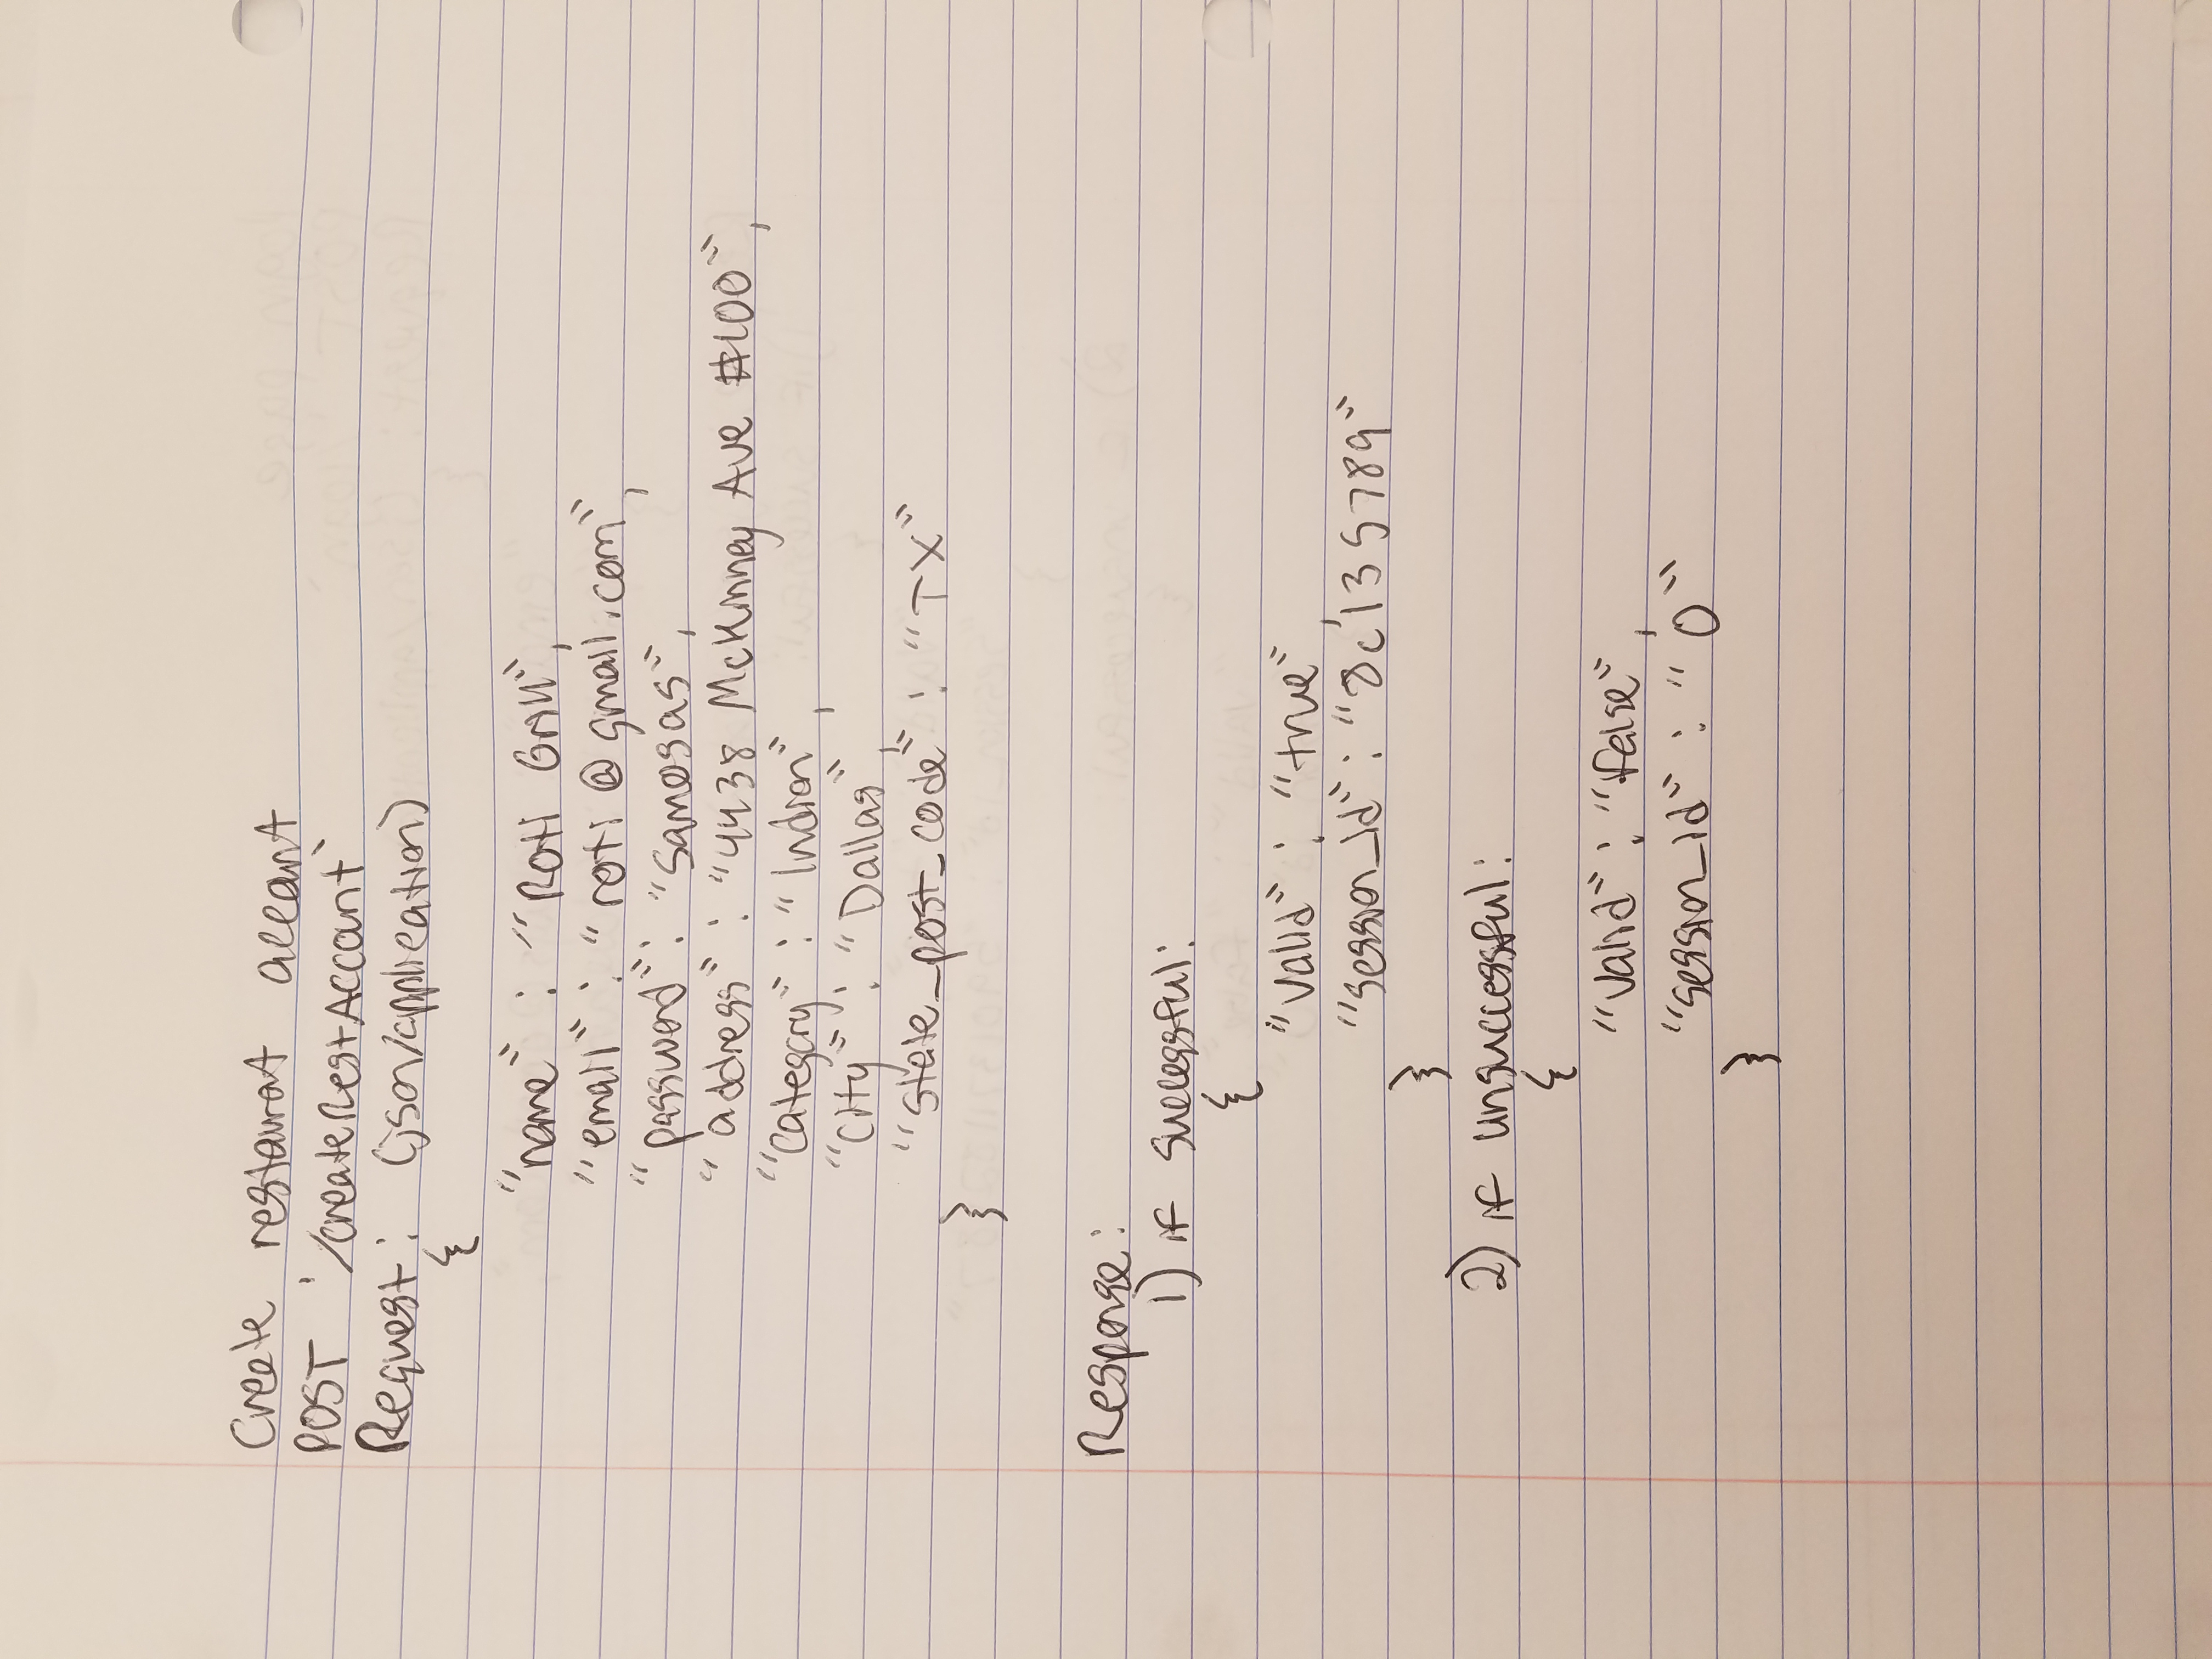 Create restaurat accant
POST '/createRestAccant'
Request: (json/application)
{
"name" : "Roti Grill",
"email" : "roti@gmail.com",
"password" : "samosas",
"address" : "4438 McKinney Ave #100",
"category" : "Indian",
"city" : "Dallas",
"state_post_code" : "TX"
}
Response:
1) if successful:
{
"valid" : "true",
"session_id" : "8c135789"
}
2) if unsuccessful:
{
"valid" : "false",
"session_id" : "0"
}